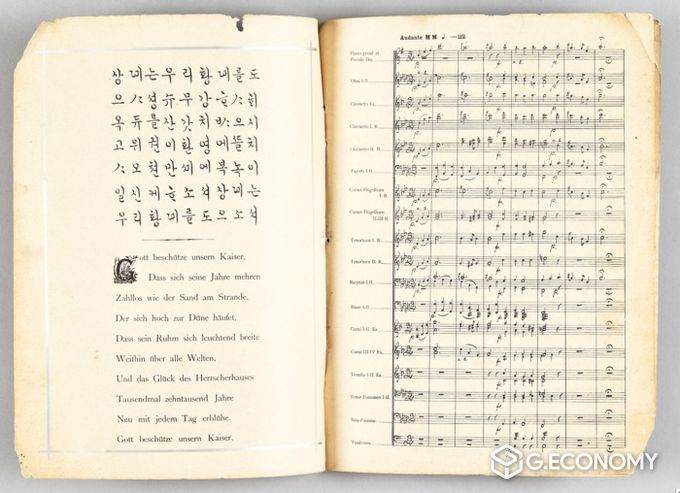 상뎨는우리황뎨를도
으ᄉᆞ셩슈무강ᄒᆞᄉᆞᄒᆡ
옥듀를산갓치ᄡᆞ으시
고위권이환영에ᄯᅥᆯ치
ᄉᆞ오쳔만셰에복녹이
일신케ᄒᆞ소셔상뎨는
우리황뎨를도으소셔
Gott beschütze unsern Kaiser,
Dass sich seine Jahre mehren
Zahllos wie der Sand am Strande,
Der sich hoch zur Düne häufet,
Dass sein Ruhm sich leuchtend breite
Weithin über alle Welten,
Und das Glück des Herrscherhauses
Tausendmal zehntausend Jahre
Neu mit jedem Tag erblühe.
Gott beschütze unsern Kaiser.
Andante M M
Oboi I-II
Clarinetto Es.
Clarinetto I. B.
Clarinetto II. B.
Fagotti I-II
Cornet-Flügelhorn
I. B.
Cornet-Flügelhorn
II-III B.
Tenorhorn I. B.
Tenorhorn II. B.
Baryton I-II
Bässe I-II
Corni I-II Es.
Corni III-IV Es.
Tromba I-II Es.
Tenor Posaunen I-II
Bass-Posaune
Tamburo
G.ECONOMY